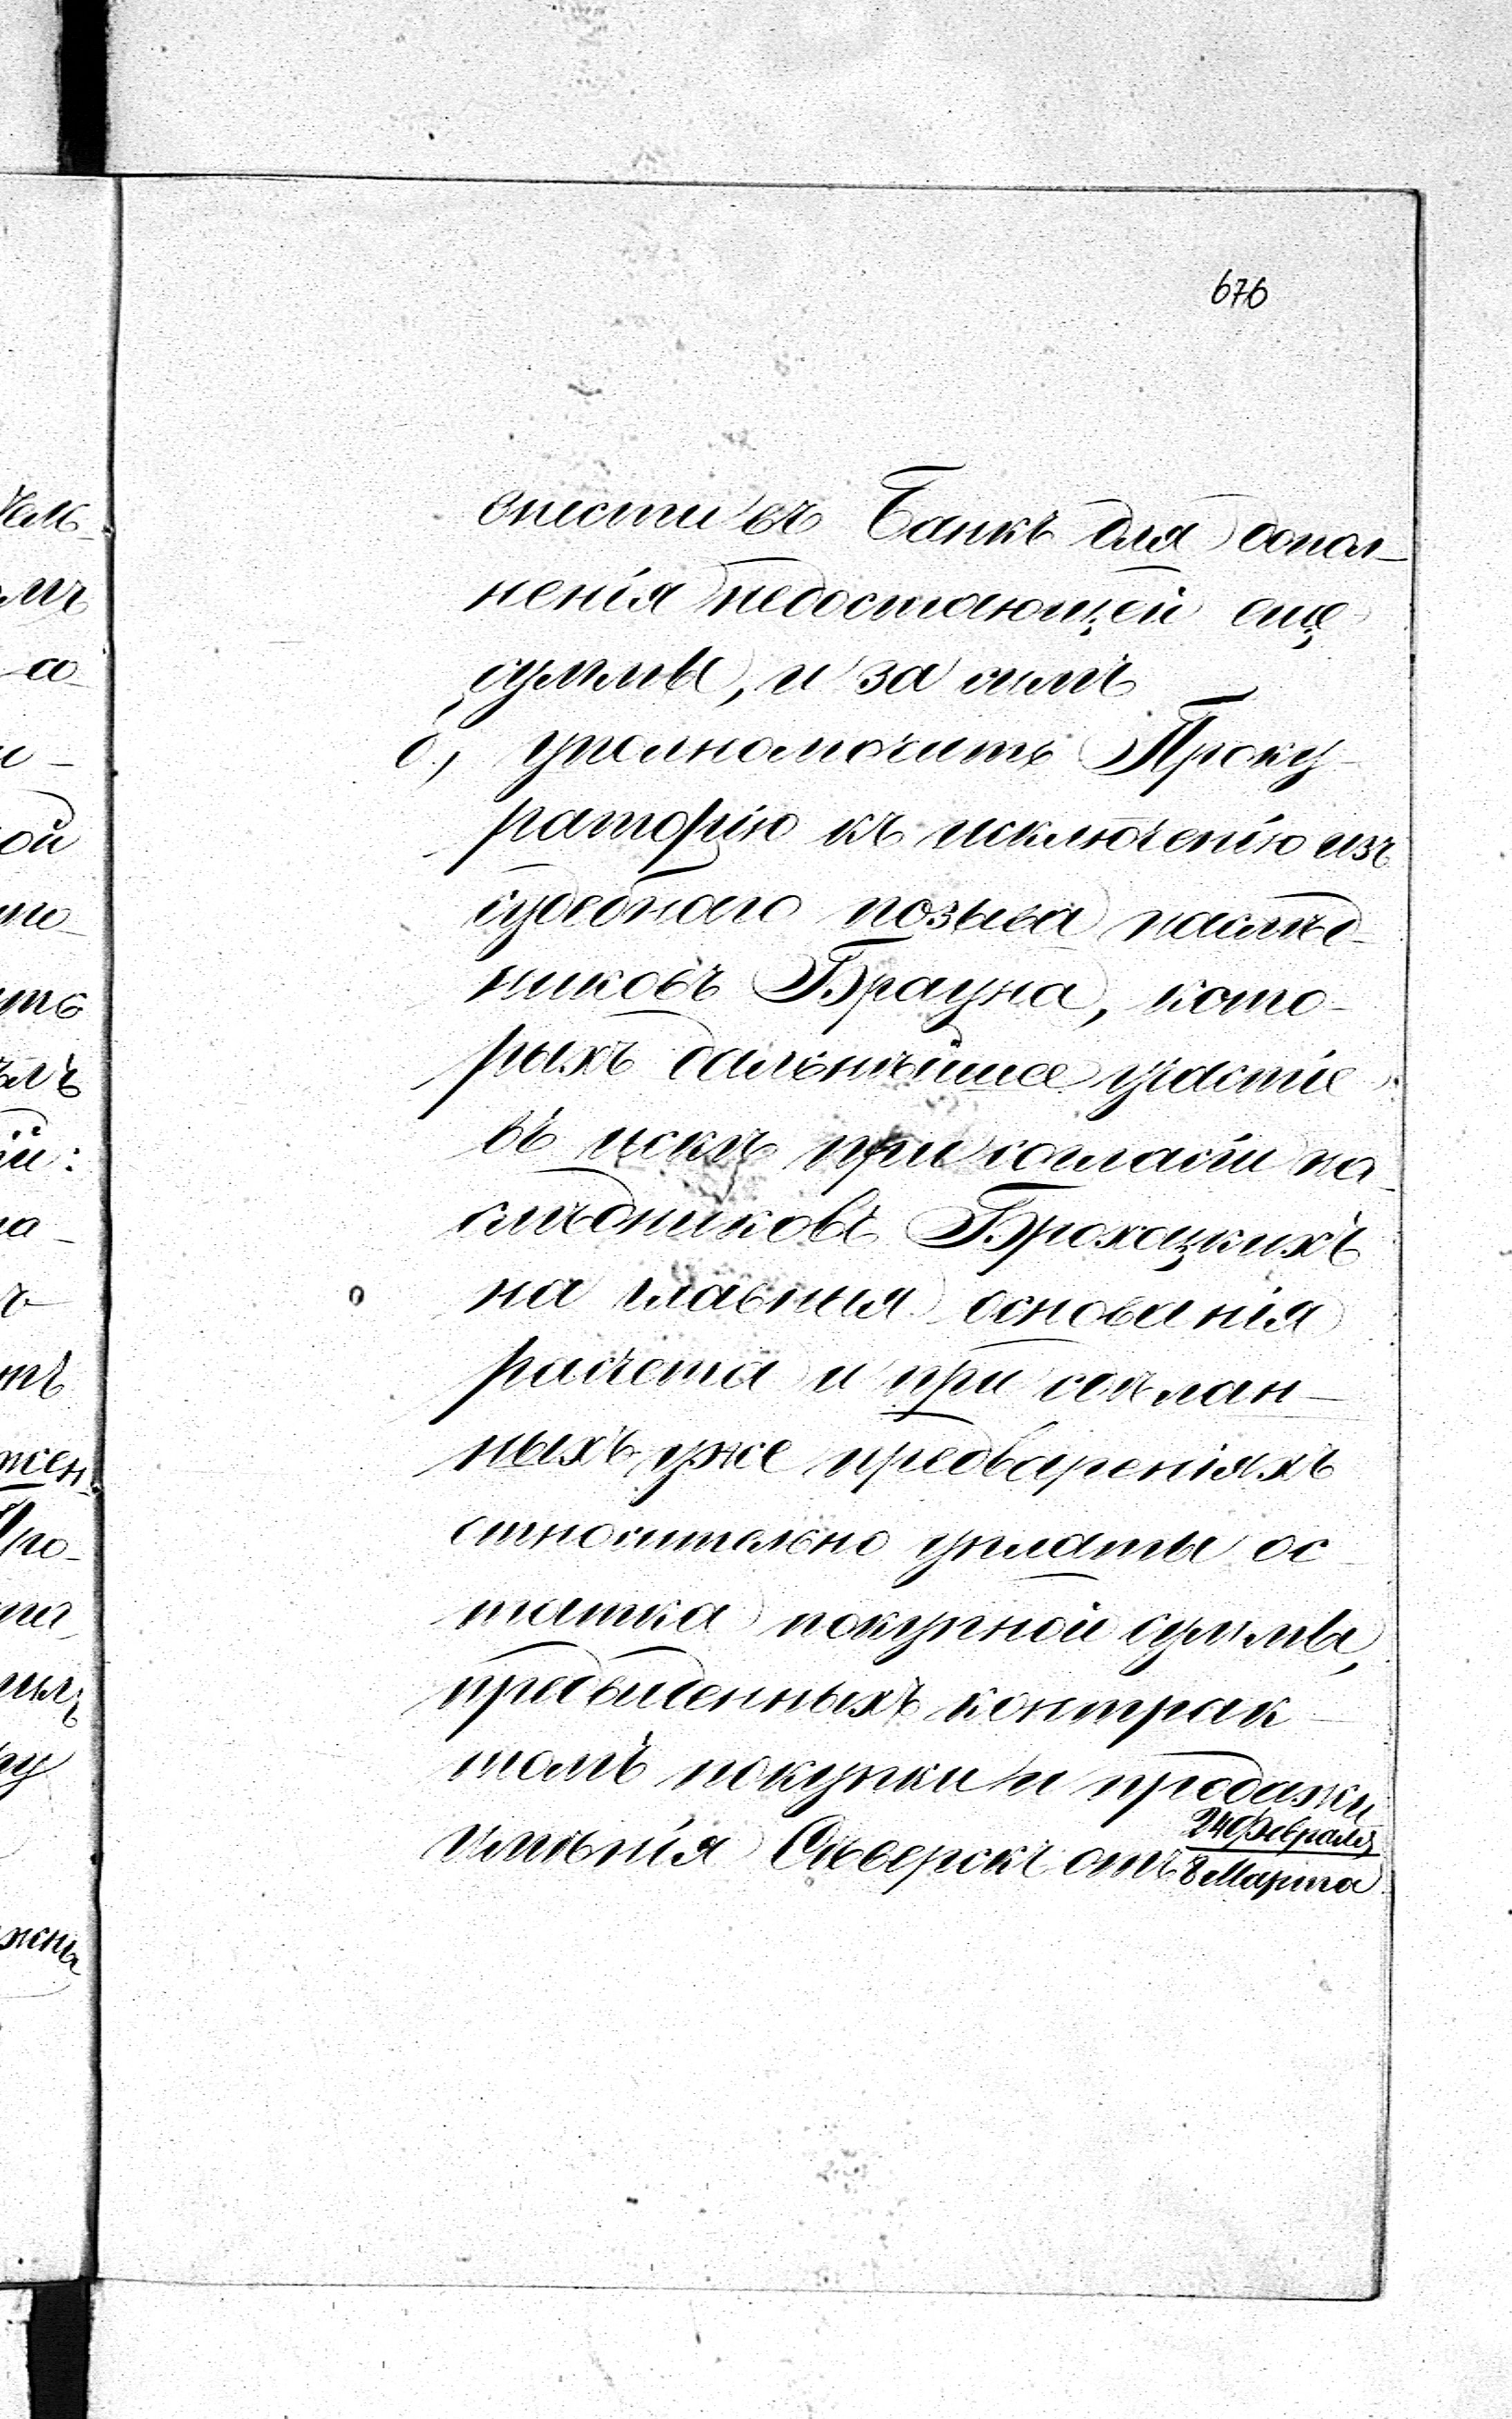 676
внести въ Банкъ для допол-
ненія недостающей еще
суммы, и за симъ
б, уполномочить Проку-
раторію къ исключенію изъ
судебнаго позыва наслѣд-
никовъ Брауна, кото-
рыхъ дальнѣйшее участіе
въ искѣ при согласіи на-
слѣдниковъ Брохоцкихъ
на главныя основанія
расчета и при сдѣлан-
ныхъ уже предвареніяхъ
относительно уплаты ос-
татка покупной суммы,
предвидѣнныхъ контрак-
томъ покупки и продажи
имѣнія Сѣверскъ отъ 24 Февраля
8 Марта